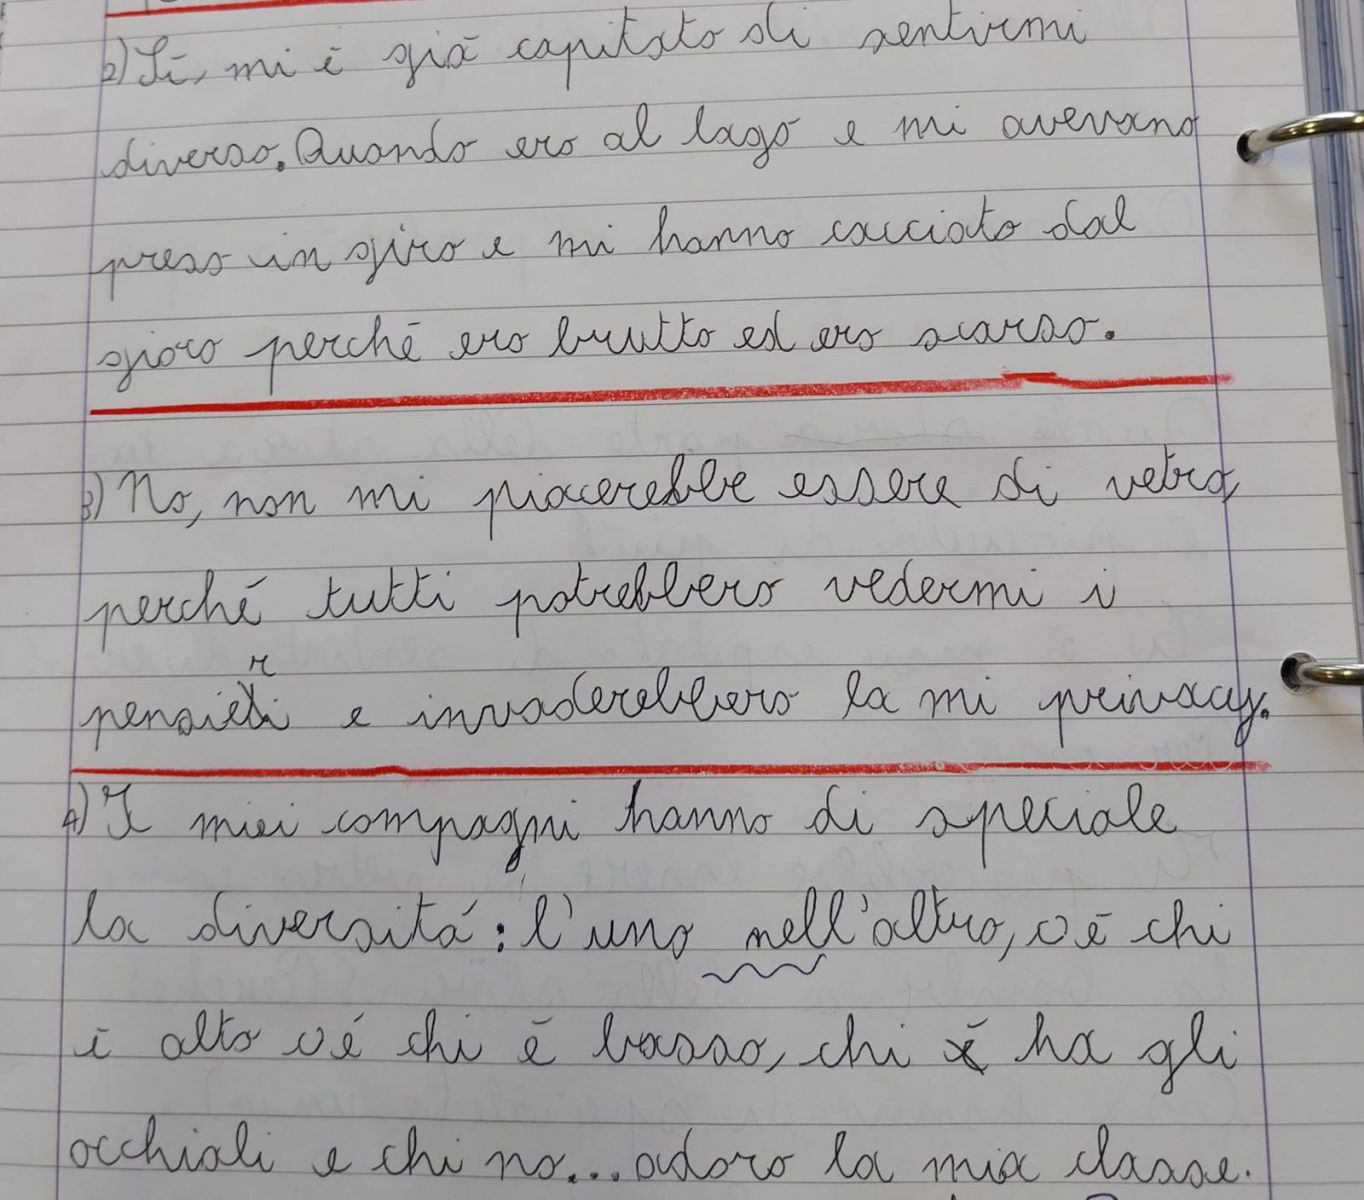 2) Sì, mi è già capitato di sentirmi
diverso. Quando ero al lago e mi avevano
preso in giro e mi hanno cacciato dal
gioro perché ero brutto ed ero scarso.
3) No, non mi piacerebbe essere di vetro,
perché tutti potrebbero vedermi i
pensieri e invaderebbero la mi privacy.
4) I miei compagni hanno di speciale
la diversitá: l'uno nell'altro, c'é chi
è alto c'é chi è basso, chi ha gli
occhiali e chi no... adoro la mia classe.